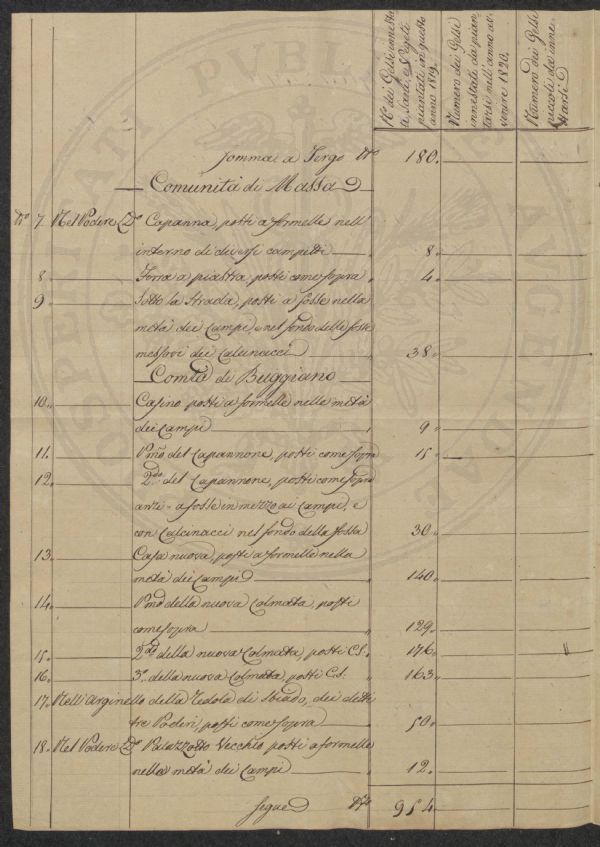 N.° dei Gelsi innesta-
ti, Sani, e Vegeti
piantati in questo
anno 1819.
Numero dei Gelsi
innestati da pian-
tarsi nell'anno av-
venire 1820.
Numero dei Gelsi
piccoli da inne-
starsi
Somma a Tergo N.° 180.
Comunità di Massa
N.° 7. Nel Podere D.° Capanna, posti a formelle nell'
interno di diversi campetti 8.
8 Torra a piastra, posti come sopra " 4.
9 Sotto la Strada, posti a fosse nella
metà dei Campi, e nel fondo delle fosse
messovi dei Calcinacci " 38.
Com.tà di Buggiano
10. Casino posti a formelle nelle metà
dei Campi " 9.
11. P.mo del Capannone, posti come sopra 15.
12. 2.do del Capannone, posti come sopra
anzi = a fosse in mezzo ai Campi, e
con Calcinacci nel fondo della fossa 30.
13. Casa nuova, posti a formelle nella
metà dei Campi " 140.
14. P.mo della nuova Colmata, posti
come sopra " 129.
15. 2.do della nuova Colmata, posti C.S. " 176. "
16. 3.° della nuova Colmata, posti C.S. " 163.
17. Nell'Arginello della di dei detti
tre Poderi, posti come sopra " 50.
18. Nel Podere D.° Palazzotto Vecchio posti a formelle
nella metà dei Campi " 12.
Segue N.° 954.
PVBLI
HOSPERITATI
AVGENDAE